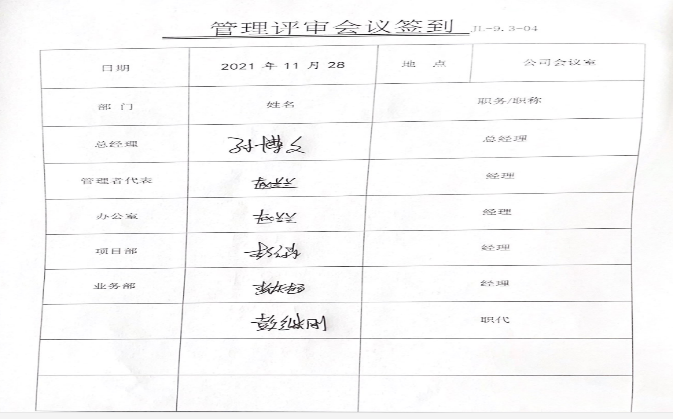 管理评审会议签到 JL-9.3-04
日期 2021 年 11 月 28 地 点 公司会议室
部 门 姓名 职务/职称
总经理 孙博文 总经理
管理者代表 经理
办公室 经理
项目部 经理
业务部 经理
职代